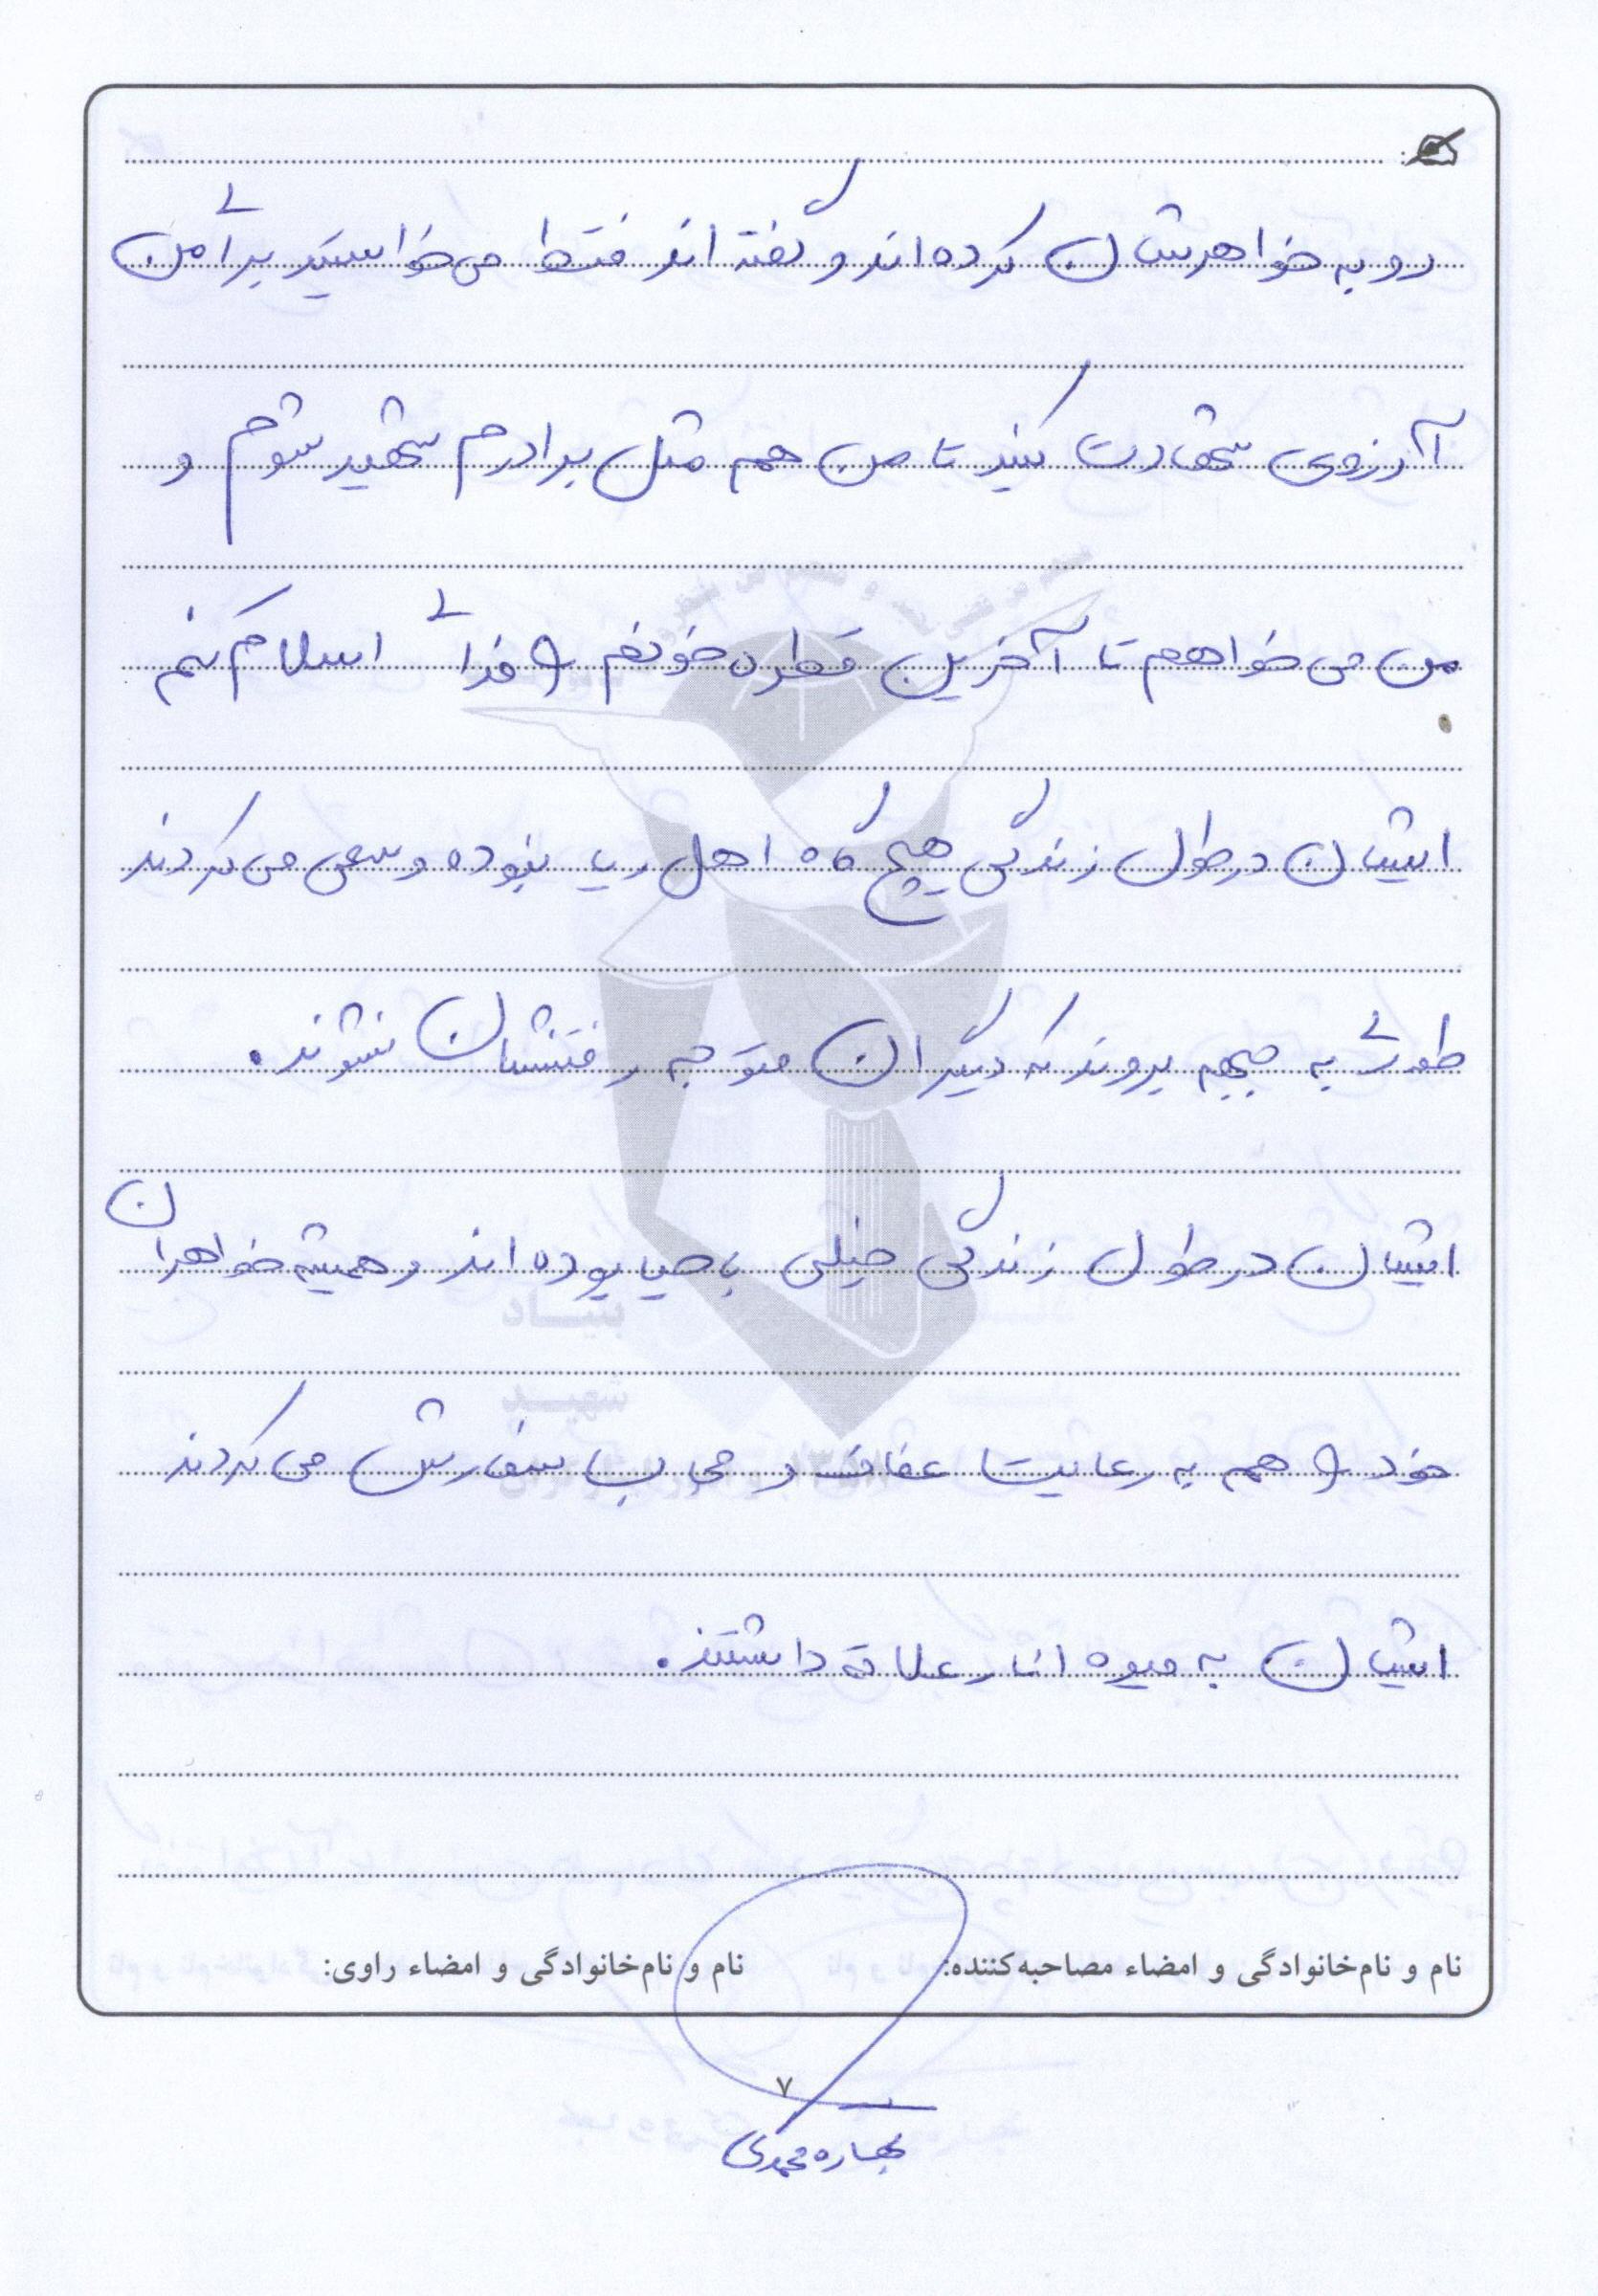 رو به خواهرشان کرده اند و گفته اند فقط می خواستید برای من
آرزوی شهادت کنید تا من هم مثل برادرم شهید شوم و
من می خواهم تا آخرین قطره خونم و فدای اسلام کنم
ایشان در طول زندگی هیچ گاه اهل ریا نبوده و سعی می کردند
طوری به جبهه بروند که دیگران متوجه رفتنشان نشوند.
ایشان در طول زندگی خیلی با حیا بوده اند و همیشه خواهران
خود و هم به رعایت عفاف و حجاب سفارش می کردند
ایشان به میوه انار علاقه داشتند.
نام و نام‌خانوادگی و امضاء مصاحبه‌کننده: نام و نام‌خانوادگی و امضاء راوی:
۷
بهاره محمدی